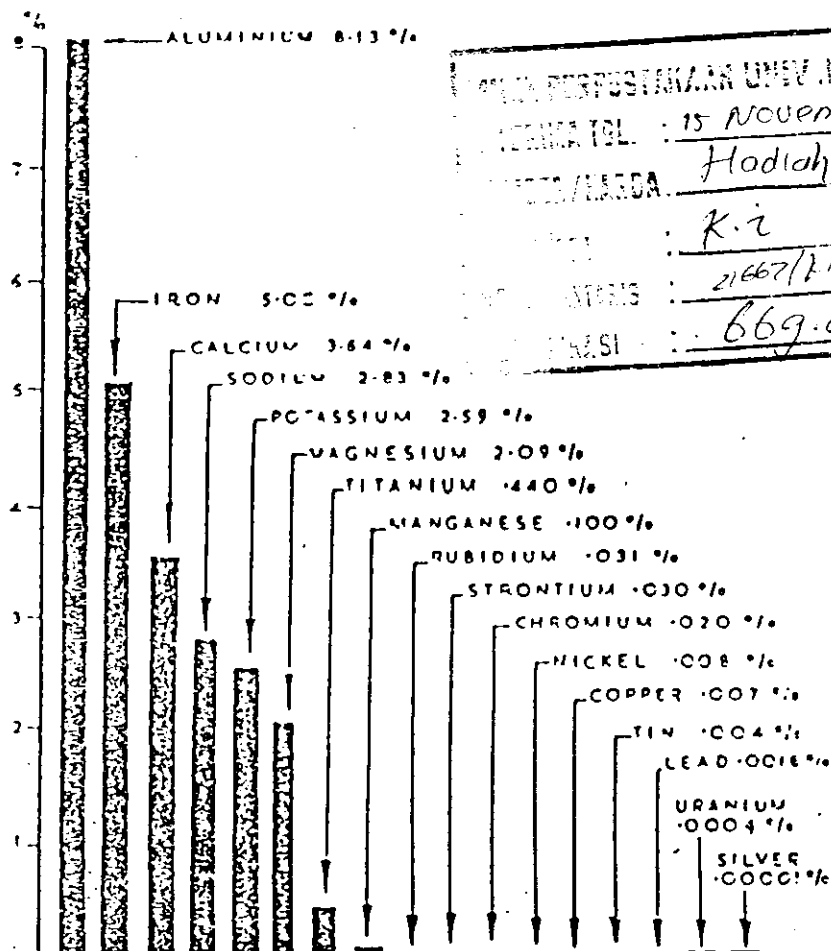 %
8
ALUMINIUM 8.13 %
7
6
5
4
3
2
1
IRON %
CALCIUM 3.64 %
SODIUM 2.83 %
POTASSIUM 2.59 %
MAGNESIUM 2.09 %
TITANIUM .440 %
MANGANESE .100 %
RUBIDIUM .031 %
STRONTIUM .030 %
CHROMIUM .020 %
NICKEL .008 %
COPPER .007 %
TIN .004 %
LEAD %
URANIUM
.0004 %
SILVER
.00001 %
PERPUSTAKAAN UNIV.
TGL. : 15 Novem
Hadiah
: K.i
: 21667/
: 669.